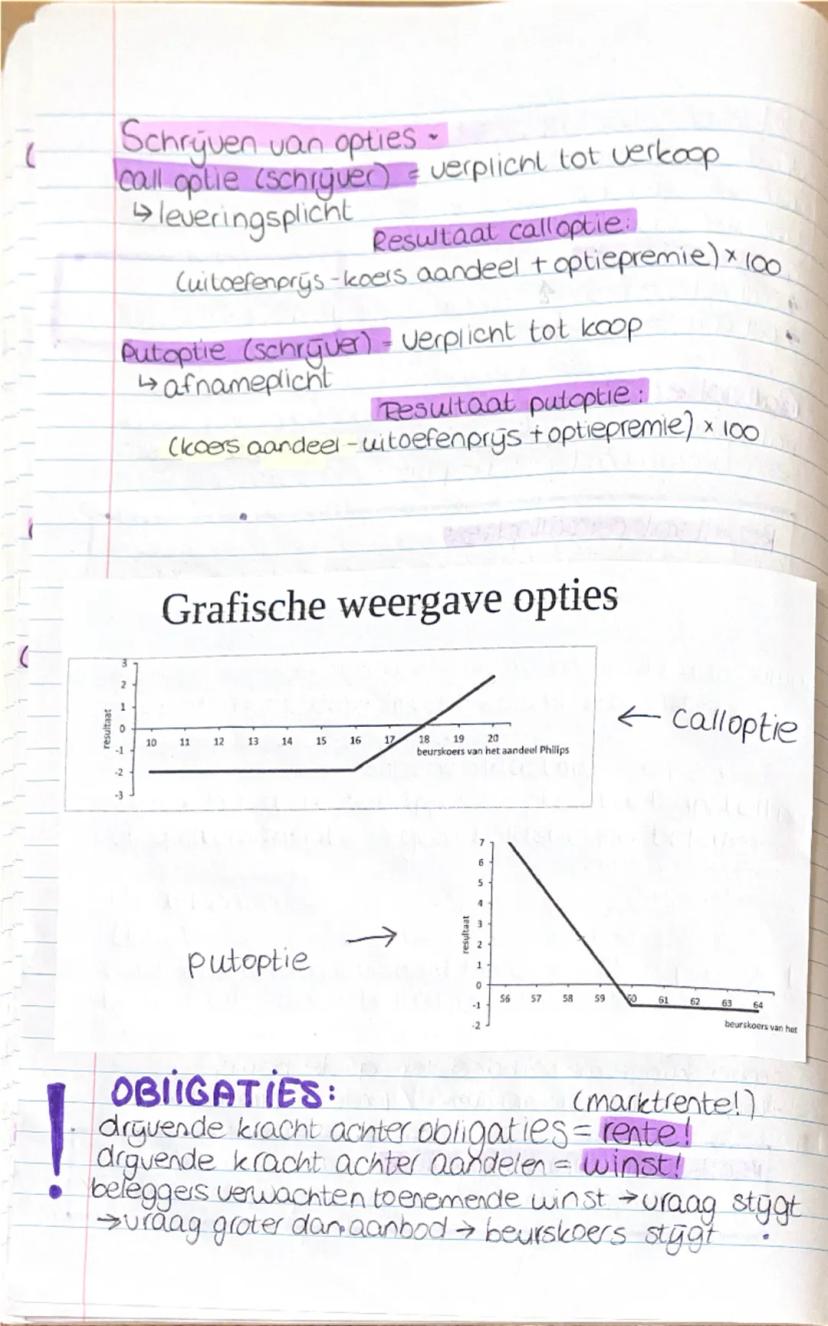 Schrijven van opties -
call optie (schrijver) = verplicht tot verkoop
↳ leveringsplicht
Resultaat calloptie:
(uitoefenprijs - koers aandeel + optiepremie) × 100
Putoptie (schrijver) = verplicht tot koop
↳ afnameplicht
Resultaat putoptie:
(koers aandeel - uitoefenprijs + optiepremie) × 100
Grafische weergave opties
3
2
1
0
-1
-2
-3
resultaat
10 11 12 13 14 15 16 17 18 19 20
beurskoers van het aandeel Philips
← calloptie
putoptie →
7
6
5
4
3
2
1
0
-1
-2
resultaat
56 57 58 59 60 61 62 63 64
beurskoers van het
! OBLIGATIES:
(marktrente!)
drijvende kracht achter obligaties = rente!
drijvende kracht achter aandelen = winst!
beleggers verwachten toenemende winst → vraag stijgt
→ vraag groter dan aanbod → beurskoers stijgt